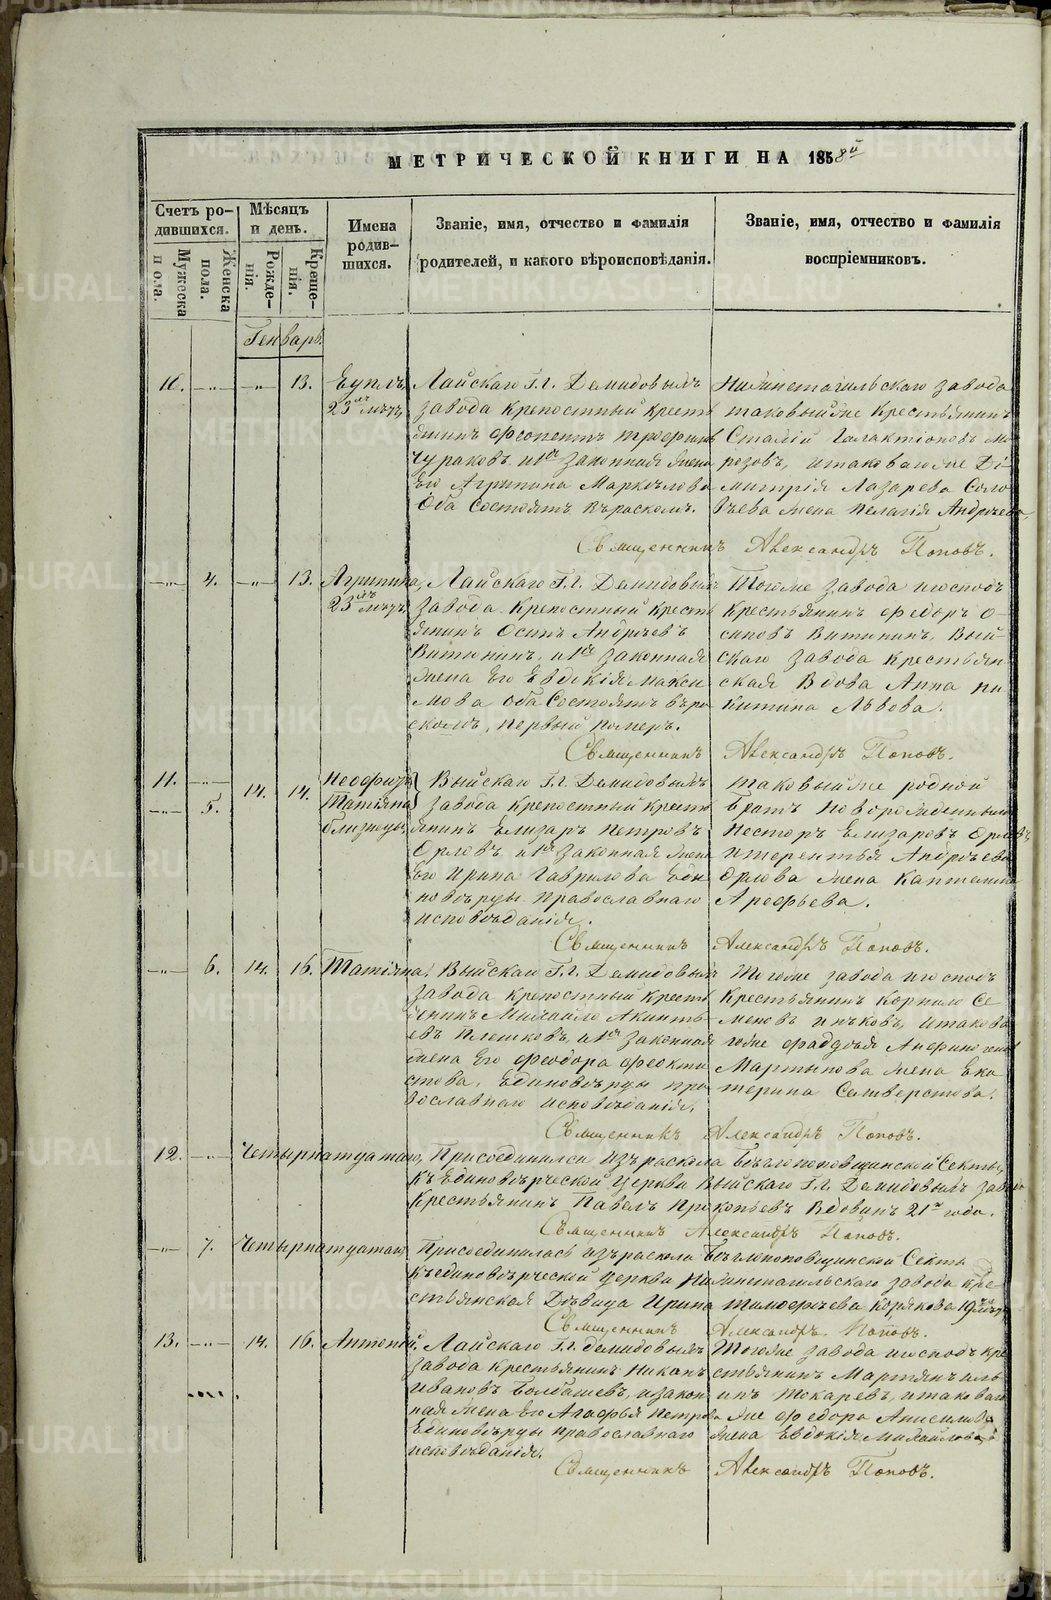 МЕТРИЧЕСКОЙ КНИГИ НА 1858й
Счетъ ро-
дившихся.
Мужеска
пола.
Женска
пола.
Мѣсяцъ
и день.
Рожде-
нія.
Креще-
нія.
Имена
родив-
шихся.
Званіе, имя, отчество и фамилія
родителей, и какого вѣроисповѣданія.
Званіе, имя, отчество и фамилія
воспріемниковъ.
Генварь.
10. 13. Еуплъ, Лайскаго Г.г. Демидовымъ
завода крепостный кресть
янинъ Трофимъ
Чураковъ, и законная жена
Его Агрипина Маркелова
Оба состоятъ въ расколѣ.
Нижнетагильскаго завода
таковыйже Крестьянинъ
Галактіоновъ Мо
розовъ, итаковагоже Ди-
митрія Лазарева Соло
вьева жена Пелагія Андреева,
Священникъ Александръ Поповъ.
4. 13. Агрипина, Лайскаго Г.г. Демидовымъ
завода Крепостный Кресть
янинъ Осипъ Андреевъ
Витюнинъ, и законная
жена Его Евдокія Макси
мова оба Состоятъ въ ра
сколѣ, первый номеръ.
Тогоже завода игосподъ
Крестьянинъ Федоръ О-
сиповъ Витюнинъ, Вый-
скаго завода крестьян
ская Вдова Анна Ни
китина Львова.
Священникъ Александръ Поповъ.
11. 5. 14. 14. Неофитъ
Татіана
близнецы,
Выйскаго Г.г. Демидовымъ
завода крепостный кресть
янинъ Елизаръ Петровъ
Орловъ и законная жена
его Ирина Гаврилова Еди
новѣрцы православнаго
исповѣданія.
таковыйже родной
братъ новорожденнымъ
Несторъ Елизаровъ Орловъ,
итерентья Андреева
Орлова жена Капитолина
Арефьева.
Священникъ Александръ Поповъ.
6. 14. 16. Татіана, Выйскаго Г.г. Демидовымъ
завода крепостный кресть
янинъ Михайло Акинть-
евъ Плешковъ, и законная
жена Его Феодора Феокти
стова, Единовѣрцы пра
вославнаго исповѣданія,
Тогоже завода игосподъ
Крестьянинъ Корнило Се
меновъ итакова
гоже Фаддея
Мартынова жена Ека
терина Селиверстова.
Священникъ Александръ Поповъ.
12. Четырнатцатаго, Присоединился изъ раскола бѣглопоповщинской секты,
къ Единовѣрческой Церкви Выйскаго Г.г. Демидовымъ завода
Крестьянинъ Павелъ Прокопьевъ Вдовинъ 21го года.
Священникъ Александръ Поповъ.
7. Четырнатцатаго, Присоединилась изъ раскола бѣглопоповщинской Секты
къединовѣрческой Церкви Нижнетагильскаго завода кре-
стьянская Дѣвица Ирина Тимофеева Корякова 19
Священникъ Александръ Поповъ.
13. 14. 16. Антоній, Лайскаго Г.г. Демидовымъ
завода Крестьянинъ
Ивановъ Болбашевъ, изакон
ная жена Его Агафья Петрова
Единовѣрцы православнаго
исповѣданія.
Тогоже завода игосподъ кре
стьянинъ Мартынъ Иль
инъ Токаревъ, итаковаго
же Федора Анисимова
жена Евдокія Михайлова
Священникъ Александръ Поповъ.
METRIKI.GASO-URAL.RU